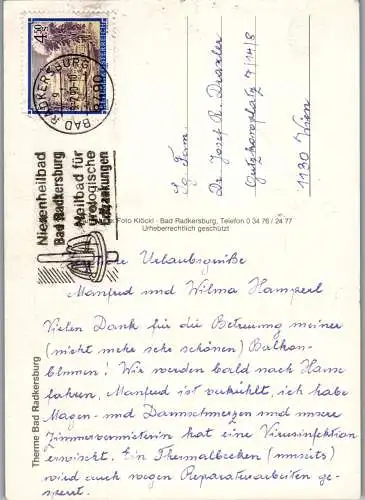 4.50
ÖSTERREICH
BAD RADKERSBURG
8490
Nierenheilbad
Bad Radkersburg
Heilbad für
urologische
Erkrankungen
Sg. Fam.
Dr. Josef R. Draxler
Gutzkowplatz 7/14/8
1130 Wien
Foto Klöckl · Bad Radkersburg, Telefon 0 34 76 / 24 77
Urheberrechtlich geschützt
Therme Bad Radkersburg
Urlaubsgrüße
Manfred und Wilma Hamperl
Vielen Dank für die Betreuung meiner
(nicht mehr sehr schönen) Balkon-
blumen! Wir werden bald nach Hause
fahren, Manfred ist verkühlt, ich habe
Magen- und Darmschmerzen und unsere
Zimmervermieterin hat eine Virusinfektion
erwischt. Ein Thermalbecken (umsits)
wird auch wegen Reparaturarbeiten ge-
sperrt.